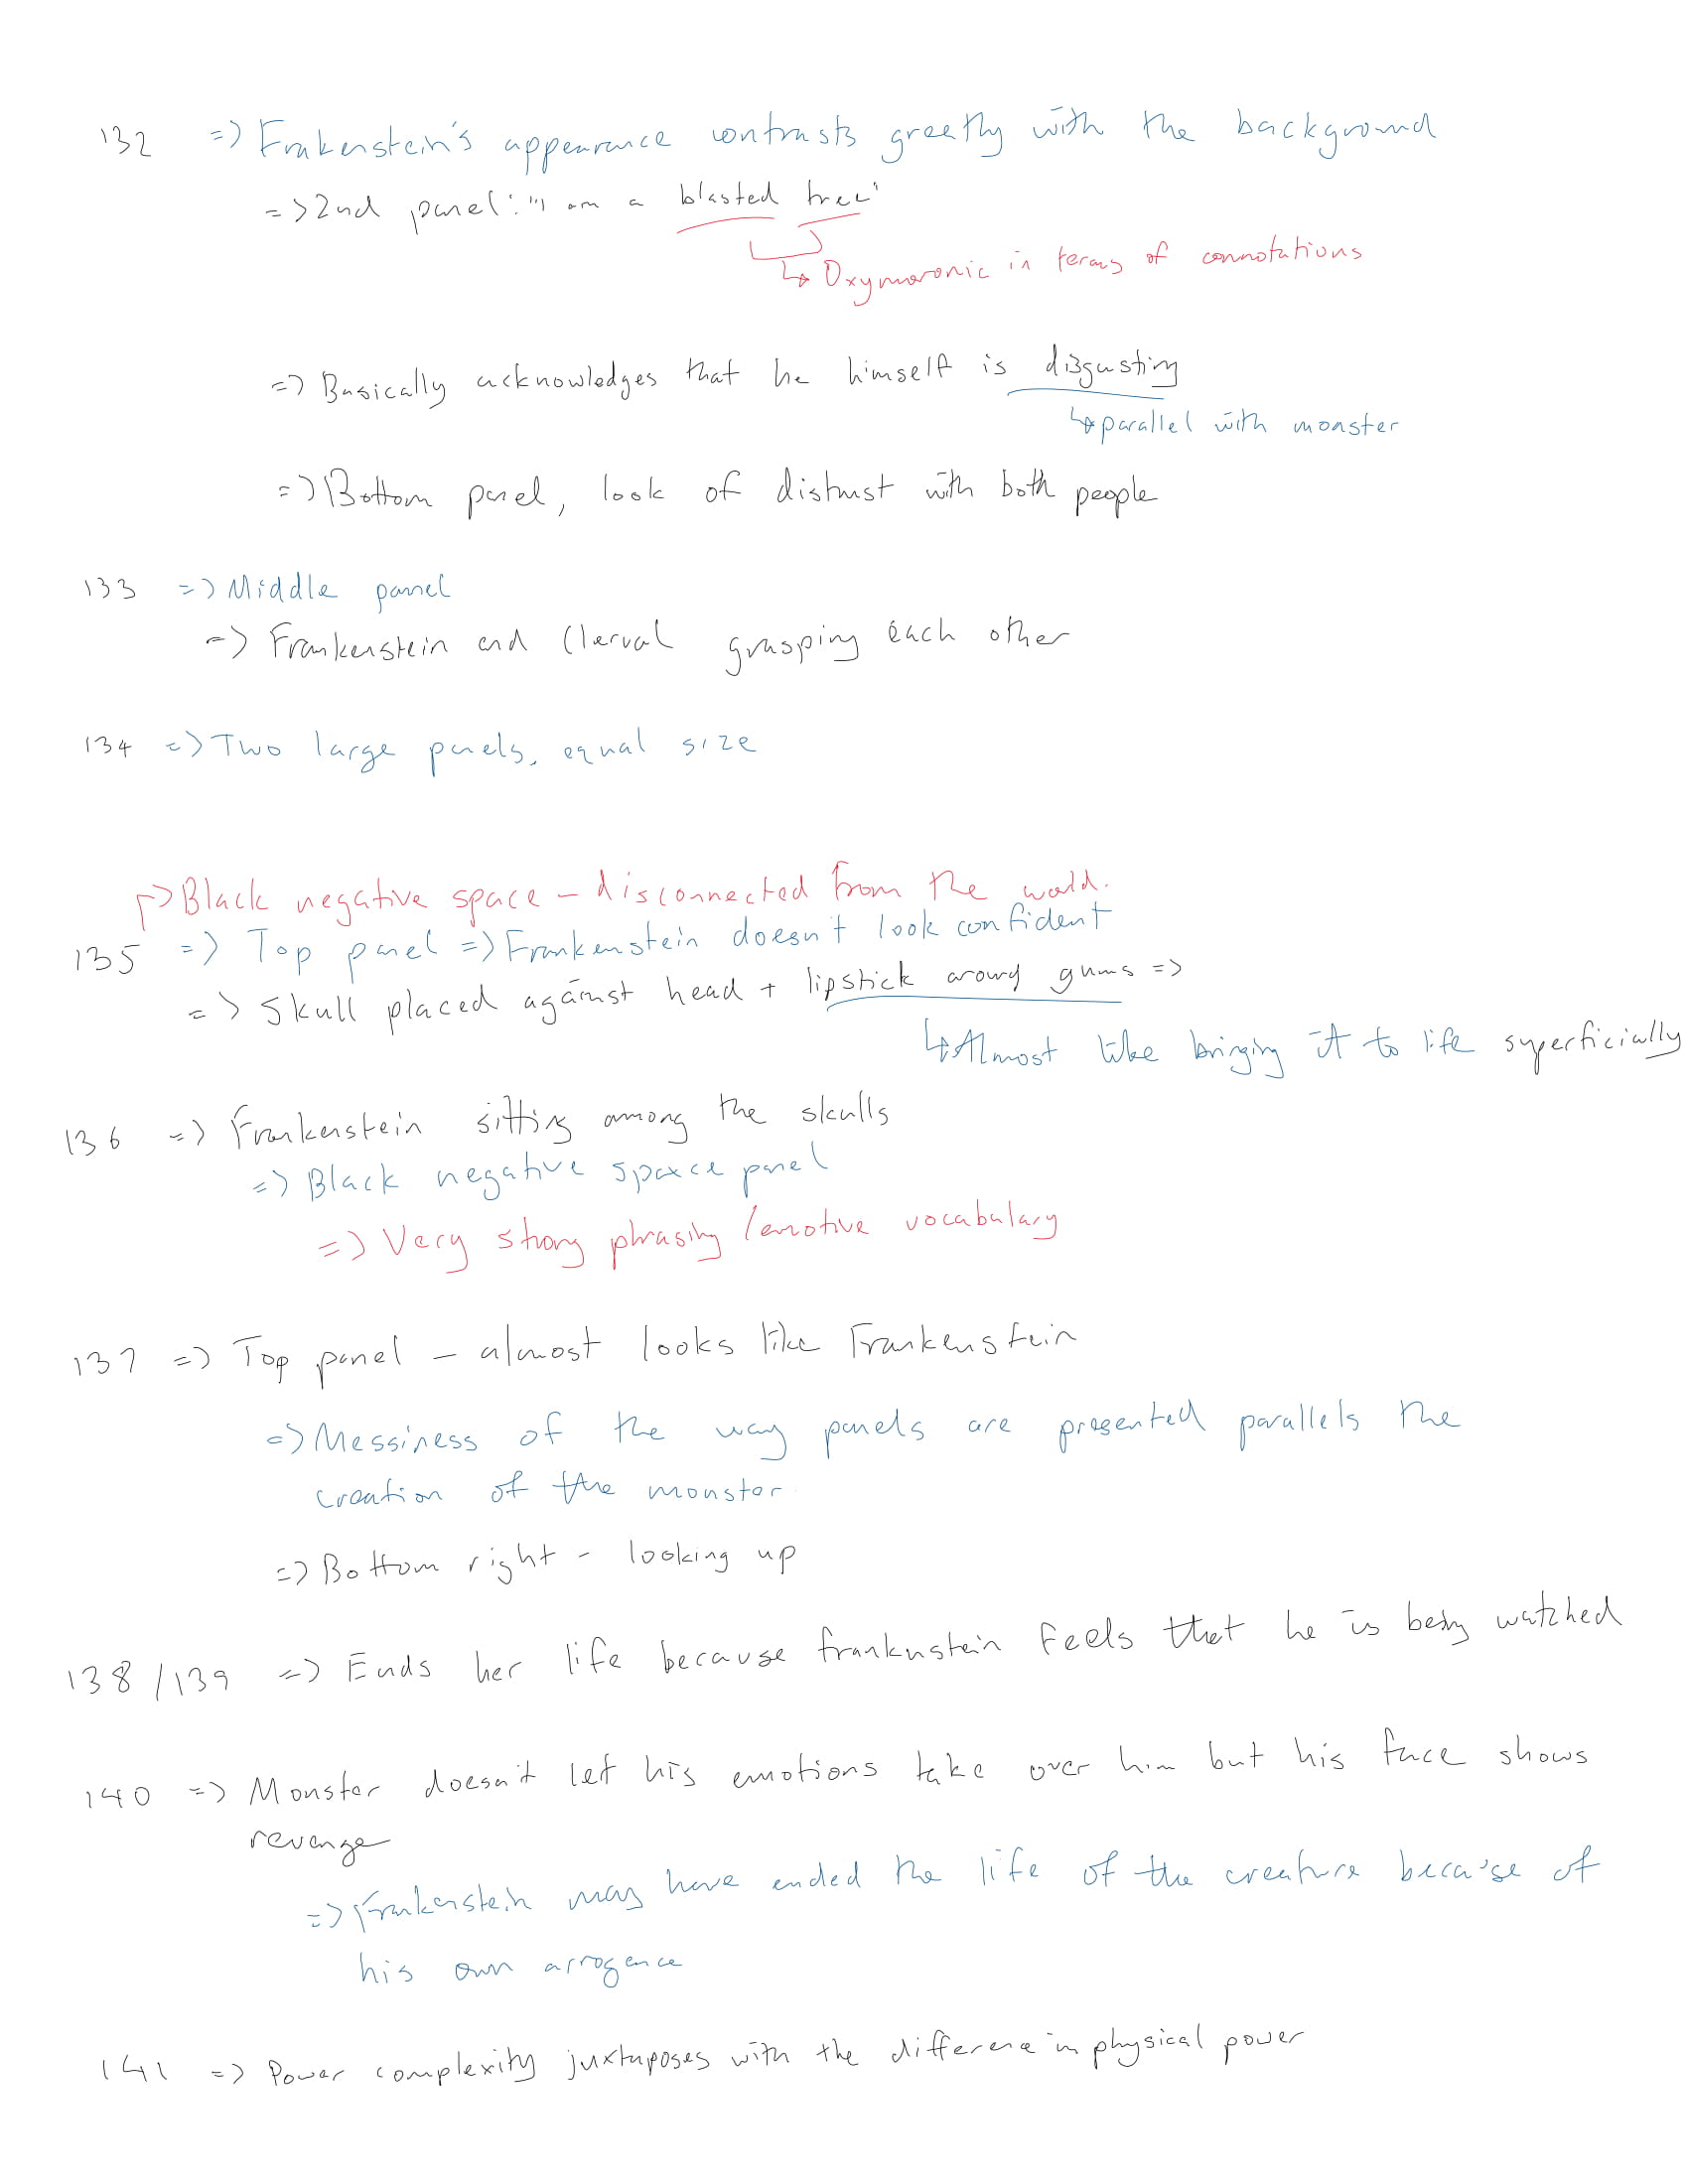 132 => Frakenstein's appearance contrasts greatly with the background
=> 2nd panel: "I am a blasted tree"
↳ Oxymoronic in terms of connotations
=> Basically acknowledges that he himself is disgusting
↳ parallel with monster
=> Bottom panel, look of distrust with both people
133 => Middle panel
=> Frankenstein and Clerval grasping each other
134 => Two large panels, equal size
↱> Black negative space - disconnected from the world.
135 => Top panel => Frankenstein doesn't look confident
=> Skull placed against head + lipstick around gums =>
↳ Almost like bringing it to life superficially
136 => Frankenstein sitting among the skulls
=> Black negative space panel
=> Very strong phrasing / emotive vocabulary
137 => Top panel - almost looks like Frankenstein
=> Messiness of the way panels are presented parallels the
creation of the monster
=> Bottom right - looking up
138/139 => Ends her life because frankenstein feels that he is being watched
140 => Monster doesn't let his emotions take over him but his face shows
revenge
=> Frankenstein may have ended the life of the creature because of
his own arrogance
141 => Power complexity juxtaposes with the difference in physical power